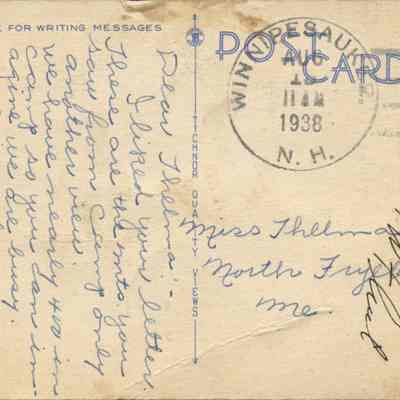 E FOR WRITING MESSAGES
POST CARD
WINNIPESAUKE
AUG
1
11 AM
1938
N. H.
Dear Thelma:-
I liked your letter.
These are the mts. you
saw from Camp only
another view.
We have nearly 40 in
camp so you can im-
agine we are busy.
TECHNOR QUALITY VIEWS
Miss Thelma
North Frye
Me.